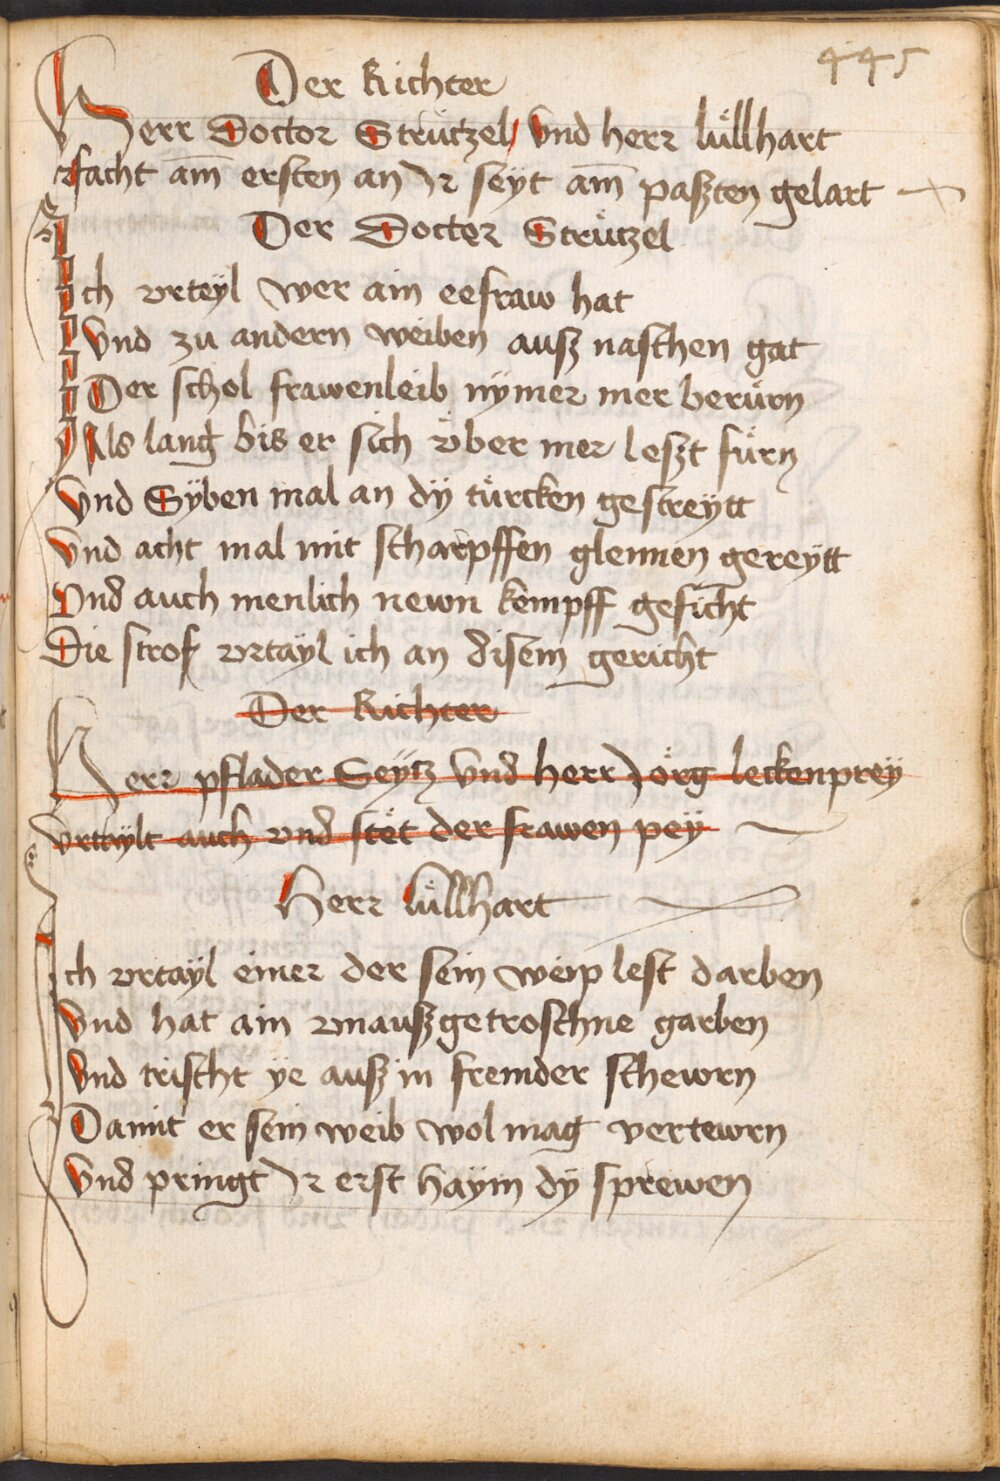 445
Der Richter
Herr Doctor Strützel und herr lüllhart
facht am̅ ersten an Ir seyt am̅ paszten gelart
Der Doctor Strützel
Ich vrteyl wer ain eefraw hat
Vnd zu andern weiben ausz naschen gat
Der schol frawenleib nÿmer mer berürn
Als lang bis er sich vber mer leszt fürn
Vnd Sÿben mal an dÿ türcken gestreÿtt
Vnd acht mal mit scharpffen glennen gereÿtt
Vnd auch menlich newn kempff gesicht
Die strof vrtaÿl ich an disem gericht
Der Richter
Herr pflader Seÿtz Vnd herr Jörg leckenpreÿ
Vrtaÿlt auch vnd stet der frawen peÿ
Herr lüllhart
Ich vrtaÿl einer der sein weip lest darben
Vnd hat ain vnauszgetroschne garben
Vnd trischt ye ausz in fremder schewrn
Damit er sein weib wol mag vertewrn
Vnd pringt Ir erst haÿm dÿ sprewen